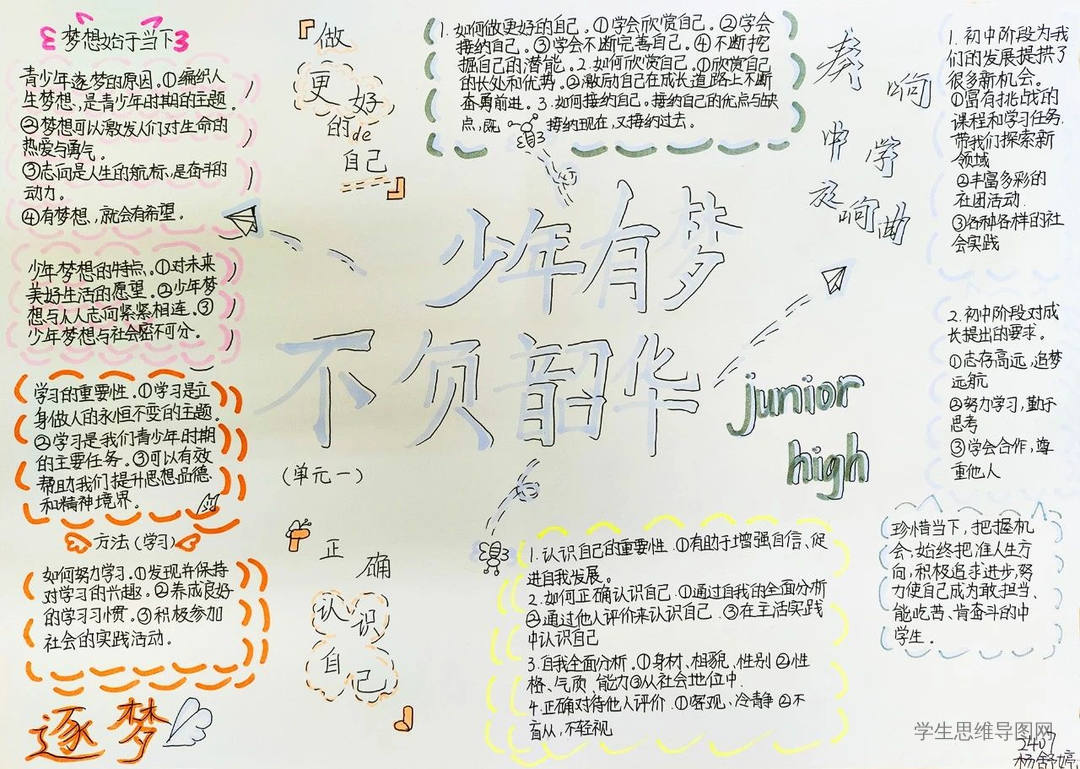 梦想始于当下
青少年逐梦的原因。①编织人
生梦想,是青少年时期的主题.
②梦想可以激发人们对生命的
热爱与勇气。
③志向是人生的航标,是奋斗的
动力。
④有梦想,就会有希望.
少年梦想的特点.①对未来
美好生活的愿望.②少年梦
想与人人志向紧紧相连.③
少年梦想与社会密不可分.
学习的重要性.①学习是立
身做人的永恒不变的主题.
②学习是我们青少年时期
的主要任务.③可以有效
帮助我们提升思想品德
和精神境界.
方法(学习)
如何努力学习.①发现并保持
对学习的兴趣.②养成良好
的学习习惯.③积极参加
社会的实践活动.
逐梦
做
更好
的de
自己
1.如何做更好的自己.①学会欣赏自己.②学会
接纳自己.③学会不断完善自己.④不断挖
掘自己的潜能.2.如何欣赏自己.①欣赏自己
的长处和优势.②激励自己在成长道路上不断
奋勇前进.3.如何接纳自己.接纳自己的优点与缺
点,既接纳现在,又接纳过去.
少年有梦
不负韶华
(单元一)
junior
high
正确
认识
自己
1.认识自己的重要性.①有助于增强自信、促
进自我发展。
2.如何正确认识自己.①通过自我的全面分析
②通过他人评价来认识自己.③在主活实践
中认识自己
3.自我全面分析.①身材、相貌、性别②性
格、气质、能力③从社会地位中.
4.正确对待他人评价.①客观、冷静②不
盲从,不轻视
奏响
中学
交响曲
1.初中阶段为我
们的发展提拱了
很多新机会.
①富有挑战的
课程和学习任务.
带我们探索新
领域
②丰富多彩的
社团活动.
③各种各样的社
会实践
2.初中阶段对成
长提出的要求。
①志存高远,追梦
远航
②努力学习,勤于
思考
③学会合作,尊
重他人
珍惜当下,把握机
会,始终把准人生方
向,积极追求进步,努
力使自己成为敢担当、
能吃苦、肯奋斗的中
学生.
学生思维导图网
2407
杨舒婷